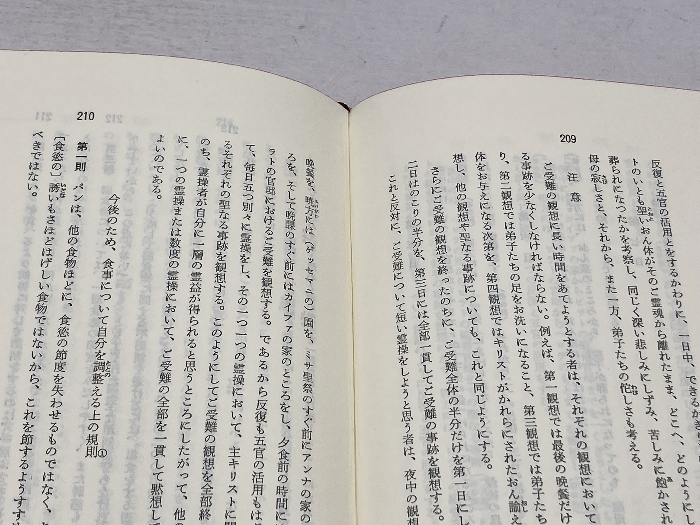 209
反復と五官の活用とをするかわりに、一日中、できるかぎり
トのいとも聖いおん体がそのご霊魂から離れたまま、どこへ、どのよう
葬られになったかを考察し、同じく深い悲しみにしずみ、苦しみに飽かされ
母の寂しさと、それから、また一方、弟子たちの侘しさも考える。
注意
ご受難の観想に長い時間をあてようとする者は、それぞれの観想において
る事跡を少なくしなければならない。例えば、第一観想では最後の晩餐だけ
り、第二観想では弟子たちの足をお洗いになること、第三観想では弟子たち
体をお与えになる次第を、第四観想ではキリストがかれらにされたおん諭え
想し、他の観想や聖なる事跡についても、これと同じようにする。
さらにご受難の観想を終えたのちに、ご受難全体の半分だけを第一日にし
二日はのこりの半分を、第三日には全部一貫してご受難の事跡を観想する。
これと反対に、ご受難について短い霊操をしようと思う者は、夜中の観想
210
晩餐を、暁には（ゲッセマニの）園を、ミサ聖祭のすぐ前にアンナの家の
ろを、そして晩課のすぐ前にはカイファの家のところをし、夕食前の時間に
ラトの官邸におけるご受難を観想する。であるから反復も五官の活用もは
て、毎日五つ別々に霊操をし、その一つ一つの霊操において、主キリストに関
るそれぞれの聖なる事跡を観想する。このようにしてご受難の観想を全部終
のち、霊操者が自分に一層の霊益が得られると思うところにしたがって、他
に、一つの霊操または数度の霊操において、ご受難の全部を一貫して黙想して
よいのである。
今後のため、食事について自分を調整える上の規則①
第一則 パンは、他の食物ほどに、食慾の節度を失わせるものではなく、ま
〔食慾の〕誘いもさほどはげしい食物ではないから、これを節するようすす
べきではない。